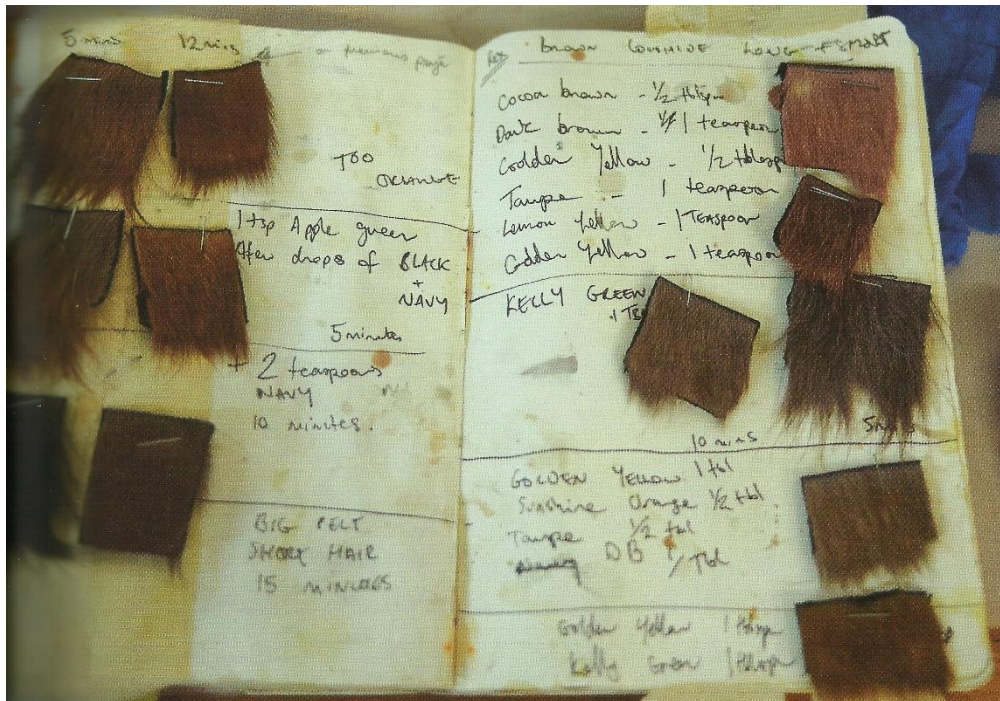 5 mins 12 mins ← on previous page
TOO
ORANGE
1 tsp Apple green
A few drops of BLACK
+
NAVY
5 minutes
+ 2 teaspoons
NAVY
10 minutes.
BIG PELT
SHORT HAIR
15 MINUTES
brown COWHIDE LONG
Cocoa brown - 1/2 tblspn
Dark brown - 1 teaspoon
Golden Yellow - 1/2 tblesp
Taupe - 1 teaspoon
Lemon Yellow - 1 TEASPOON
Golden Yellow - 1 teaspoon
KELLY GREEN
10 mins 5 mins
GOLDEN YELLOW 1 tbl
Sunshine Orange 1/2 tbl
Taupe 1/2 tbl
DB 1 Tbl
Golden Yellow 1 tbsp
Kelly Green 1 tblspn